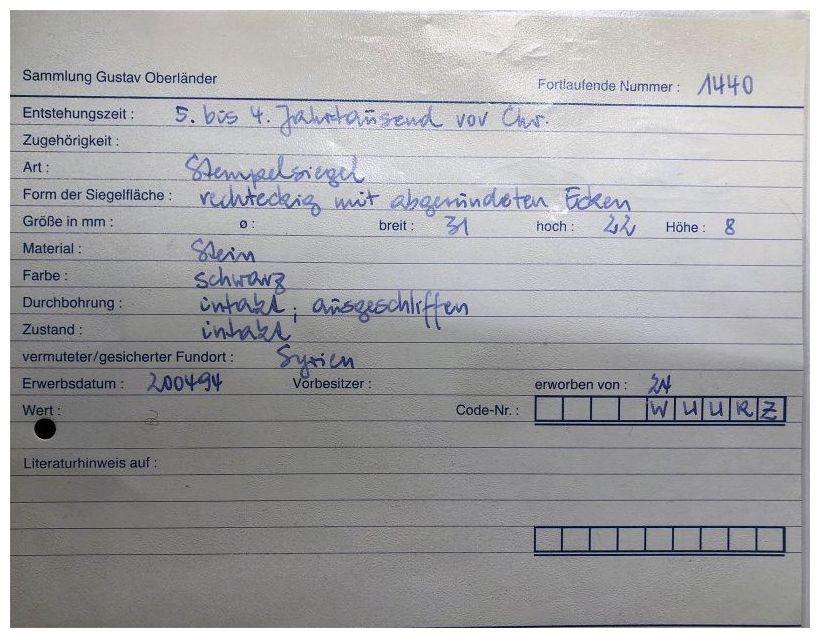 Sammlung Gustav Oberländer
Fortlaufende Nummer : 1440
Entstehungszeit : 5. bis 4. Jahrtausend vor Chr.
Zugehörigkeit :
Art : Stempelsiegel
Form der Siegelfläche : rechteckig mit abgerundeten Ecken
Größe in mm : ø : breit : 31 hoch : 22 Höhe : 8
Material : Stein
Farbe : schwarz
Durchbohrung : intakt ; ausgeschliffen
Zustand : intakt
vermuteter/gesicherter Fundort : Syrien
Erwerbsdatum : 200494 Vorbesitzer : erworben von : 24
Wert : Code-Nr. : WUURZ
Literaturhinweis auf :